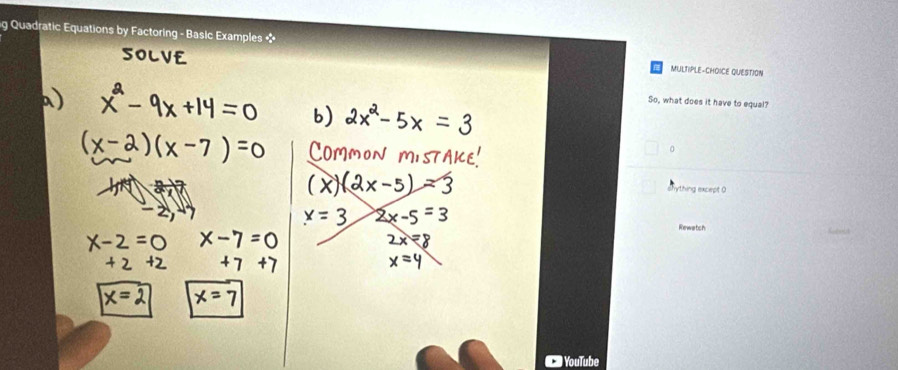 g Quadratic Equations by Factoring - Basic Examples
SOLVE
a) x² - 9x + 14 = 0
(x - 2)(x - 7) = 0
-2, -7
x - 2 = 0 x - 7 = 0
+2 +2 +7 +7
x = 2 x = 7
b) 2x² - 5x = 3
COMMON MISTAKE!
(x)(2x - 5) = 3
x = 3 2x - 5 = 3
2x = 8
x = 4
YouTube
MULTIPLE-CHOICE QUESTION
So, what does it have to equal?
0
anything except 0
Rewatch
Submit